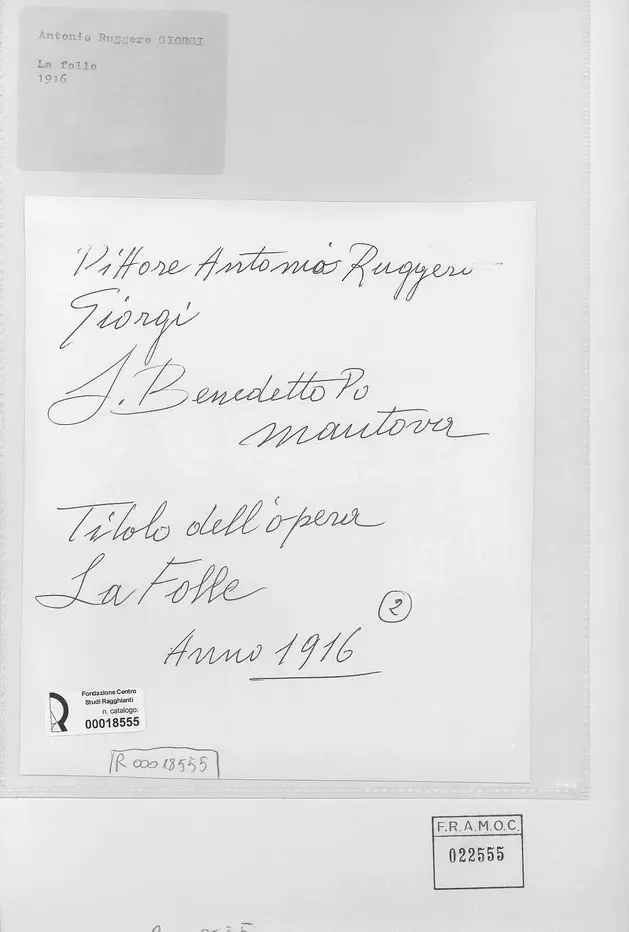 Antonio Ruggero GIORGI
La folle
1916
Pittore Antonio Ruggero
Giorgi
S. Benedetto Po
Mantova
Titolo dell'opera
La Folle
2
Anno 1916
Fondazione Centro
Studi Ragghianti
n. catalogo:
00018555
R 00018555
F.R.A.M.O.C.
022555